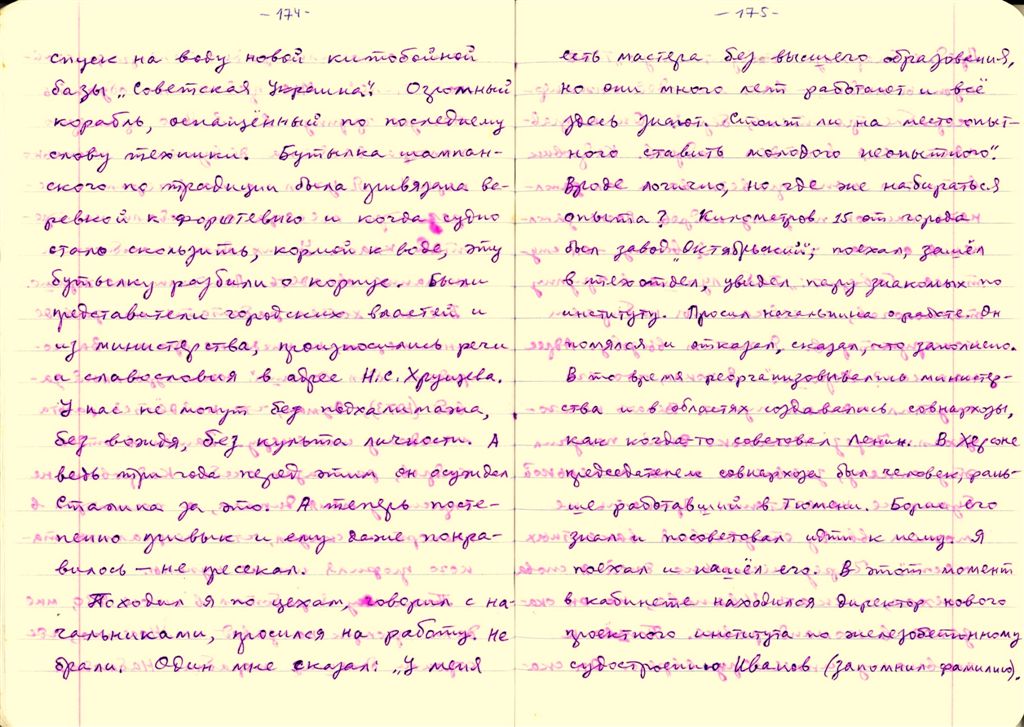 - 174 -
спуск на воду новой китобойной
базы „Советская Украина". Огромный
корабль, оснащённый по последнему
слову техники. Бутылка шампан-
ского по традиции была привязана ве-
ревкой к форштевню и когда судно
стало скользить, кормой к воде, эту
бутылку разбили о корпус. Были
представители городских властей и
из министерства, произносились речи
и славословия в адрес Н.С. Хрущева.
У нас не могут без подхалимажа,
без вождя, без культа личности. А
ведь три года перед этим он осуждал
Сталина за это. А теперь посте-
пенно привык и ему даже понра-
вилось — не пресекал.
Походил я по цехам, говорил с на-
чальниками, просился на работу. Не
брали. Один мне сказал: „У меня
- 175 -
есть мастера без высшего образования,
но они много лет работают и всё
здесь знают. Стоит ли на место опыт-
ного ставить молодого неопытного".
Вроде логично, но где же набираться
опыта? Километров 15 от города
был завод „Октябрьский"; поехал, зашёл
в техотдел, увидел пару знакомых по
институту. Просил начальника о работе. Он
помялся и отказал, сказал, что заполнено.
В то время реорганизовывались министер-
ства и в областях создавались совнархозы,
как когда-то советовал Ленин. В Херсоне
председателем совнархоза был человек, рань-
ше работавший в Тюмени. Борис его
знал и посоветовал идти к нему. Я
поехал и нашёл его. В этот момент
в кабинете находился директор нового
проектного института по железобетонному
судостроению Иванов (запомнил фамилию).